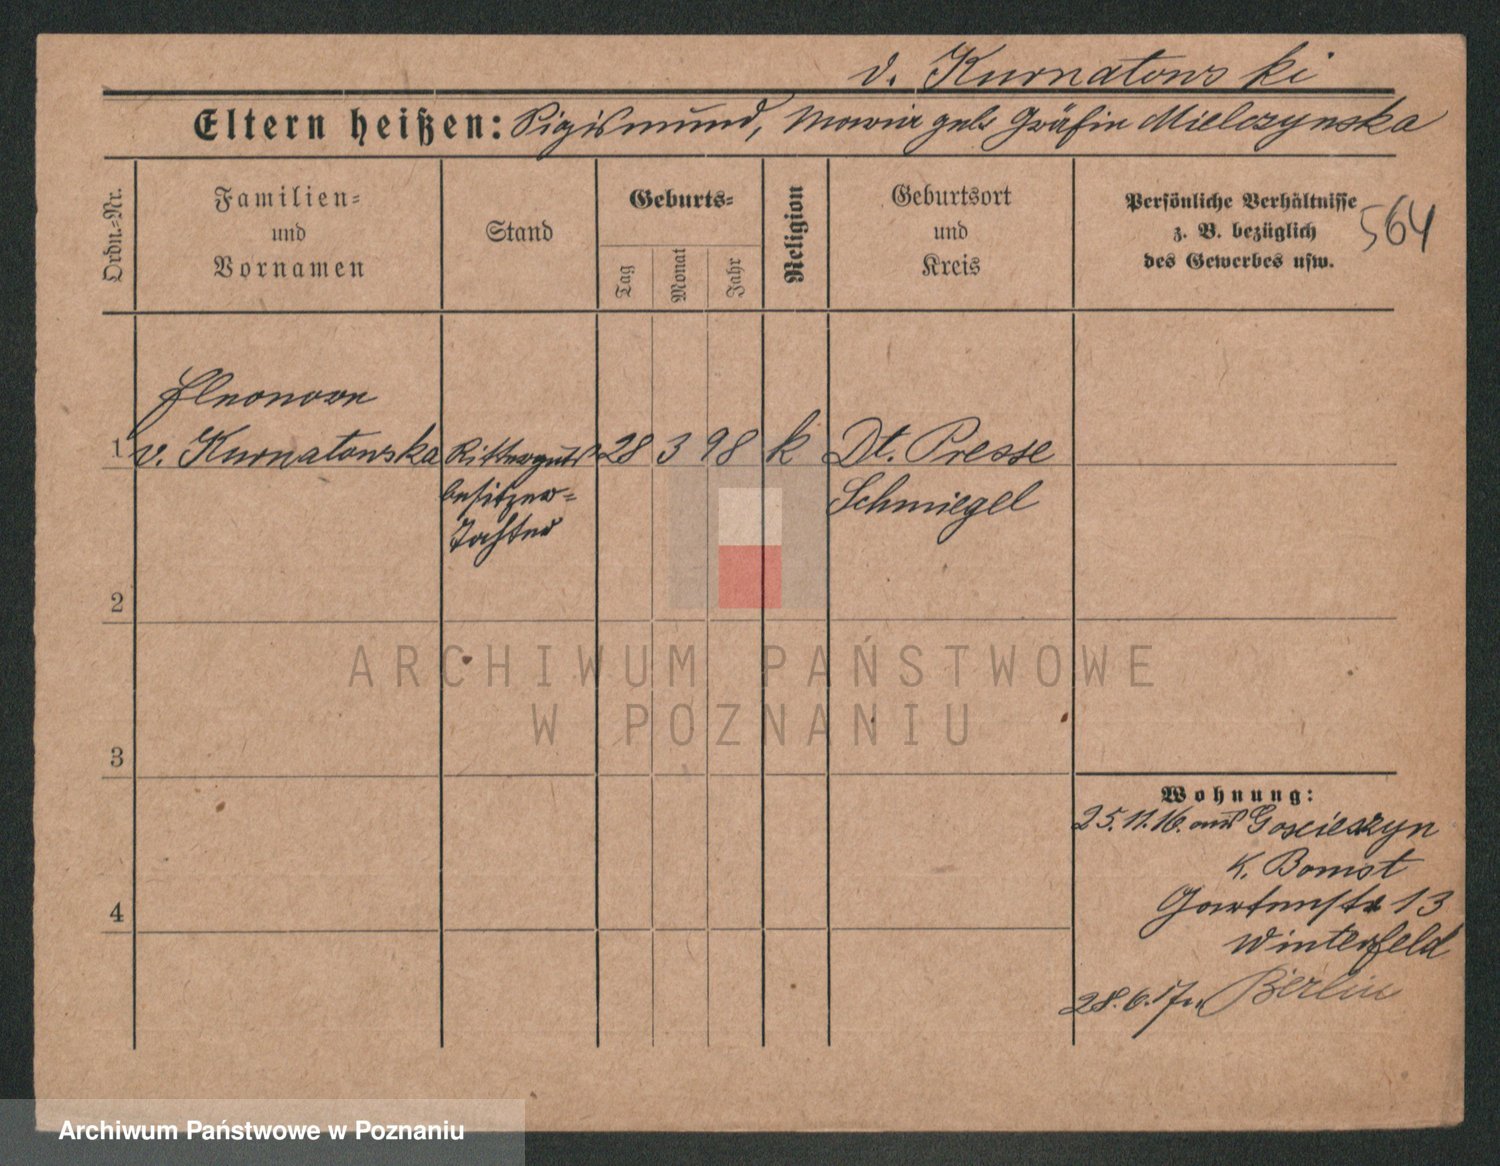 v. Kurnatowski
Eltern heißen: Sigismund, Maria geb Gräfin Mielczynska
Ordn.-Nr.
Familien-
und
Vornamen
Stand
Geburts-
Tag
Monat
Jahr
Religion
Geburtsort
und
Kreis
Persönliche Verhältnisse
z. B. bezüglich
des Gewerbes usw.
564
Eleonore
1 v. Kurnatowska Ritterguts 28 3 98 k Dt. Presse
besitzer-
Tochter
Schmiegel
2
3
4
Wohnung:
25.11.16. aus Goscieszyn
K. Bomst
Gartenstr 13
Winterfeld
28.6.17 n Berlin
ARCHIWUM PAŃSTWOWE
W POZNANIU
Archiwum Państwowe w Poznaniu